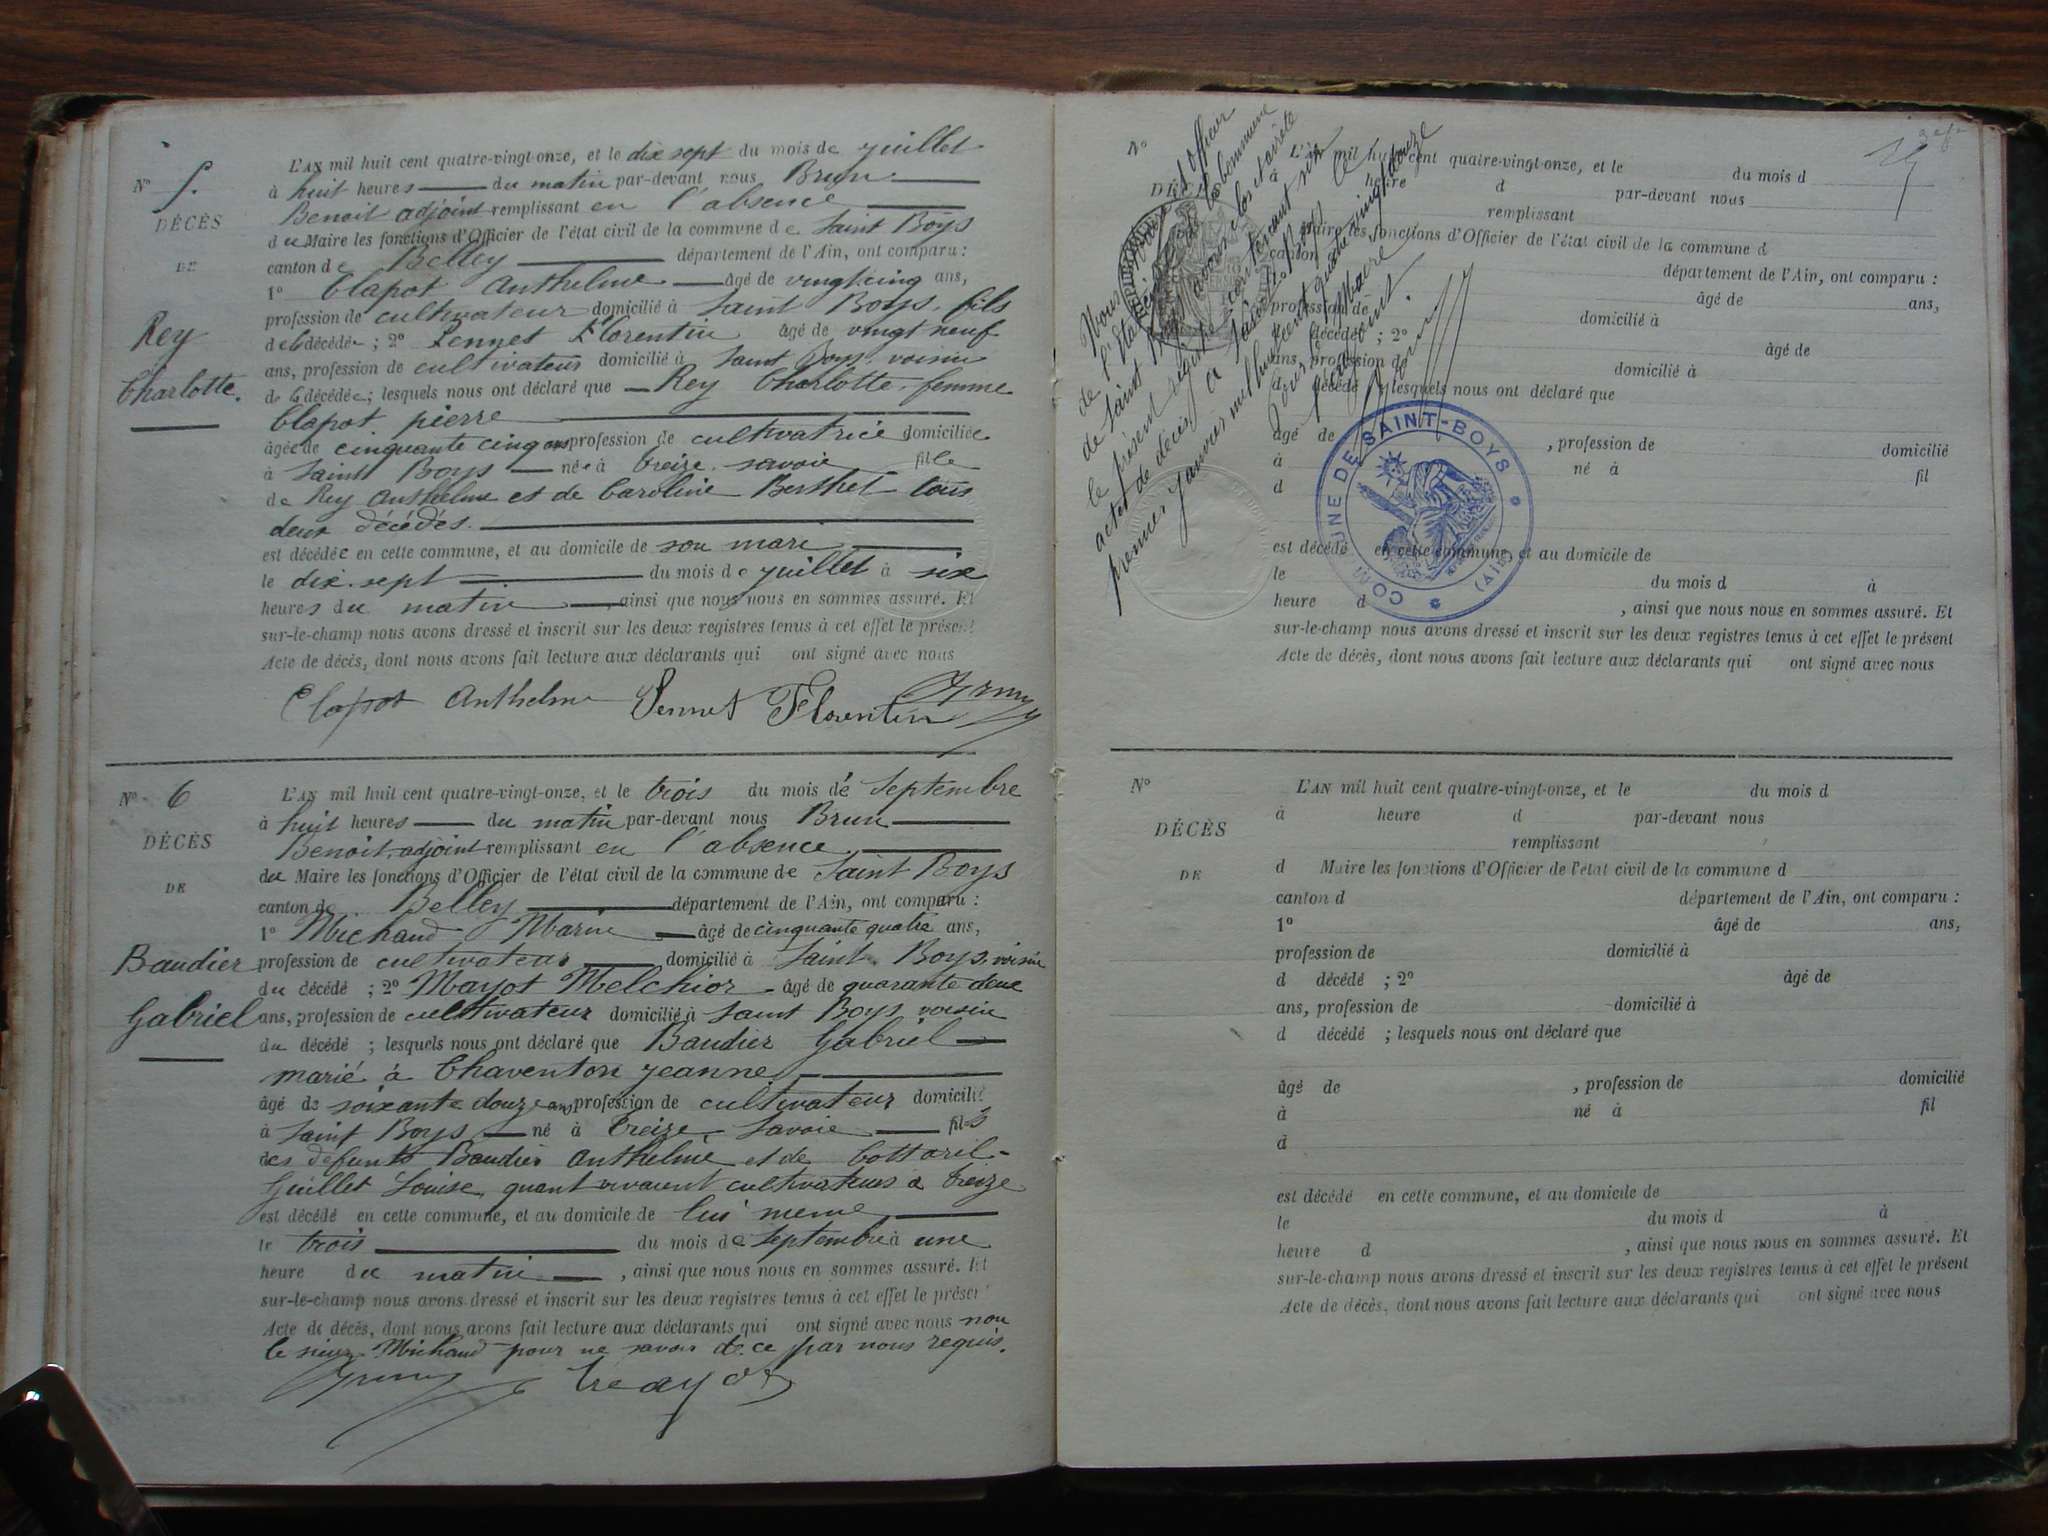 L'AN mil huit cent quatre-vingt-onze, et le dix sept du mois de juillet
N° 5.
à huit heures du matin par-devant nous Brun
Benoit adjoint remplissant en l'absence
DÉCÈS
du Maire les fonctions d'Officier de l'état civil de la commune de Saint Boys
DE
canton de Belley département de l'Ain, ont comparu :
1° Clapot Anthelme âgé de vingt cinq ans,
profession de cultivateur domicilié à Saint Boys, fils
Rey
de la décédée ; 2° Pennet Florentin âgé de vingt neuf
ans, profession de cultivateur domicilié à Saint Boys voisin
Charlotte.
de la décédée ; lesquels nous ont déclaré que Rey Charlotte, femme
Clapot pierre
âgée de cinquante cinq ans profession de cultivatrice domiciliée
à Saint Boys née à Treize, savoie fille
de Rey Anthelme et de Caroline Berthet tous
deux décédés.
est décédée en cette commune, et au domicile de son mari
le dix-sept du mois de juillet à six
heures du matin , ainsi que nous nous en sommes assuré. Et
sur-le-champ nous avons dressé et inscrit sur les deux registres tenus à cet effet le présent
Acte de décès, dont nous avons fait lecture aux déclarants qui ont signé avec nous
Clapot Anthelme Pennet Florentin Brun
N° 6
L'AN mil huit cent quatre-vingt-onze, et le trois du mois de Septembre
à huit heures du matin par-devant nous Brun
DÉCÈS
Benoit, adjoint remplissant en l'absence
du Maire les fonctions d'Officier de l'état civil de la commune de Saint Boys
DE
canton de Belley département de l'Ain, ont comparu :
1° Michaud Marin âgé de cinquante quatre ans,
Baudier
profession de cultivateur domicilié à Saint Boys, voisin
du décédé ; 2° Mayot Melchior âgé de quarante deux
Gabriel
ans, profession de cultivateur domicilié à Saint Boys voisin
du décédé ; lesquels nous ont déclaré que Baudier Gabriel
marié à Chaventon jeanne
âgé de soixante douze ans profession de cultivateur domicilié
à Saint Boys né à Treize, Savoie fils
des défunts Baudier Anthelme et de
Guillet Louise, quant vivaient cultivateurs à Treize
est décédé en cette commune, et au domicile de lui meme
le trois du mois de Septembre à une
heure du matin , ainsi que nous nous en sommes assuré. Et
sur-le-champ nous avons dressé et inscrit sur les deux registres tenus à cet effet le présent
Acte de décès, dont nous avons fait lecture aux déclarants qui ont signé avec nous non
le sieur Michaud pour ne savoir de ce par nous requis.
Brun
Nous et Officier
de l'état civil de la Commune
de Saint Boys avons clos et arrêté
le présent registre contenant six
actes de décès, a Saint Boys le
premier janvier mil huit cent quatre vingt douze
Pour le Maire
l'adjoint.
Brun
N°
L'AN mil huit cent quatre-vingt-onze, et le du mois d
à heure d par-devant nous
DÉCÈS
remplissant
Maire les fonctions d'Officier de l'état civil de la commune d
canton département de l'Ain, ont comparu :
âgé de ans,
profession de domicilié à
décédé ; 2° âgé de
ans, profession de domicilié à
d décédé ; lesquels nous ont déclaré que
COMMUNE DE SAINT-BOYS
(Ain)
âgé de , profession de domicilié
à né à fil
d
est décédé en cette commune, et au domicile de
le du mois d à
heure d , ainsi que nous nous en sommes assuré. Et
sur-le-champ nous avons dressé et inscrit sur les deux registres tenus à cet effet le présent
Acte de décès, dont nous avons fait lecture aux déclarants qui ont signé avec nous
N°
L'AN mil huit cent quatre-vingt-onze, et le du mois d
à heure d par-devant nous
DÉCÈS
remplissant
d Maire les fonctions d'Officier de l'état civil de la commune d
DE
canton d département de l'Ain, ont comparu :
1° âgé de ans,
profession de domicilié à
d décédé ; 2° âgé de
ans, profession de domicilié à
d décédé ; lesquels nous ont déclaré que
âgé de , profession de domicilié
à né à fil
d
est décédé en cette commune, et au domicile de
le du mois d à
heure d , ainsi que nous nous en sommes assuré. Et
sur-le-champ nous avons dressé et inscrit sur les deux registres tenus à cet effet le présent
Acte de décès, dont nous avons fait lecture aux déclarants qui ont signé avec nous